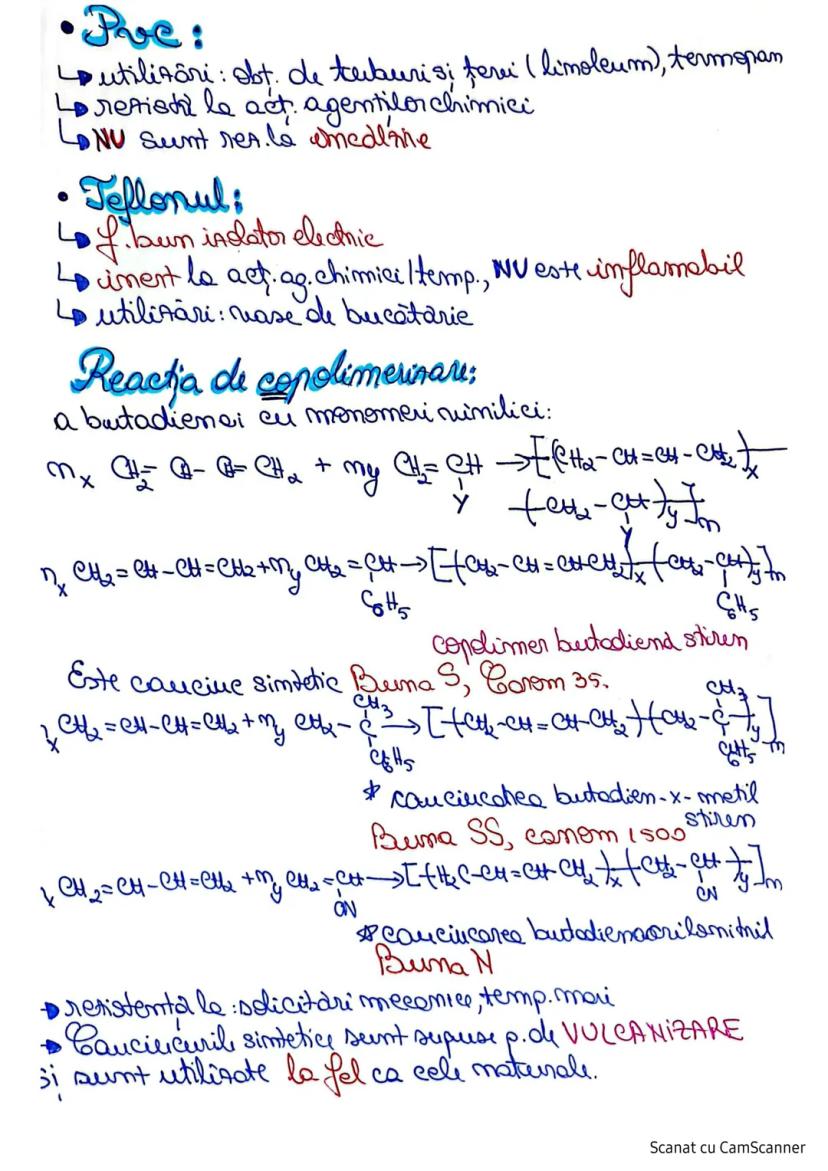 • Pvc:
↳ utilizări: obț. de tuburi și țevi (limoleum), termopan
↳ rezistă la acț. agenților chimici
↳ NU sunt rez. la
• Teflonul:
↳ f. bun izolator electric
↳ inert la acț. ag. chimici/temp., NU este inflamabil
↳ utilizări: vase de bucătărie
Reacția de copolimerizare:
a butadienei cu monomeri vinilici:
nx CH2= C- C= CH2 + ny CH2= CH → [(CH2-CH=CH-CH2)x
Y
(CH2-CH)y]n
Y
nx CH2=CH-CH=CH2+ny CH2=CH→[(CH2-CH=CHCH2]x(CH2-CH)y]n
C6H5 C6H5
copolimer butadiend stiren
Este cauciuc sintetic Buna S, Carom 35.
CH3 CH3
x CH2=CH-CH=CH2+ny CH2-C→[(CH2-CH=CH-CH2)(CH2-C)y]n
C6H5 C6H5
* cauciucatrea butadien-x-metil
stiren
Buna SS, carom 1500
x CH2=CH-CH=CH2+ny CH2=CH→[(H2C-CH=CH-CH2)x(CH2-CH)y]n
CN CN
* cauciucarea butadienacrilonitril
Buna N
→ rezistență la: solicitări mecanice, temp. mari
→ Cauciucurile sintetice sunt supuse p. de VULCANIZARE
și sunt utilizate la fel ca cele naturale.
Scanat cu CamScanner